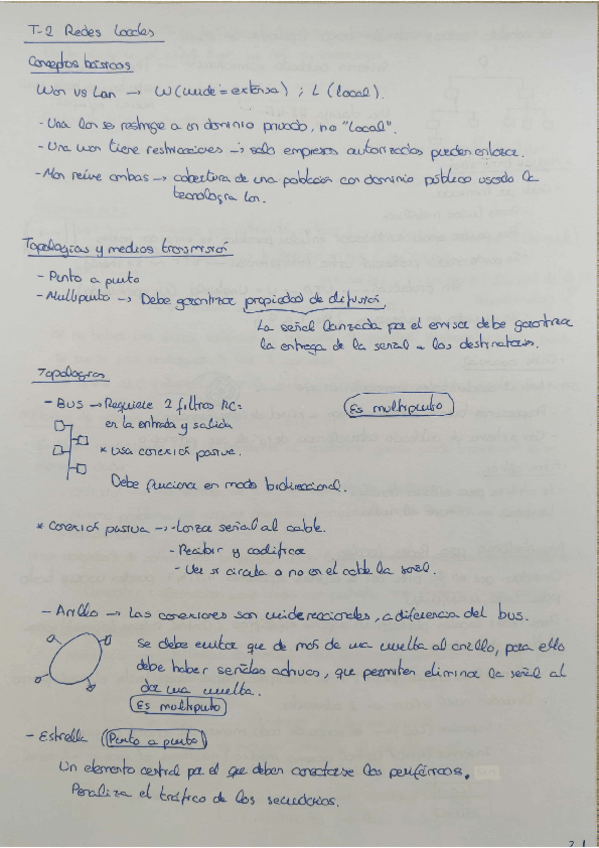 T-2 Redes Locales
Conceptos básicos
Wan vs Lan → W (wide = extensa) ; L (local).
- Una lan se restringe a un dominio privado, no "local".
- Una wan tiene restricciones → solo empresas autorizadas pueden enlazar.
- Man reúne ambas → cobertura de una población con dominio público usando la
tecnología lan.
Topologías y medios transmisión
- Punto a punto
- Multipunto → Debe garantizar propiedad de difusión
La señal lanzada por el emisor debe garantizar
la entrega de la señal a los destinatarios.
Topologías
- BUS → Requiere 2 filtros RC:
Es multipunto
en la entrada y salida
* usa conexión pasiva.
Debe funcionar en modo bidireccional.
* conexión pasiva → - Lanza señal al cable.
- Recibir y codificar
- Ver si circula o no en el cable la señal.
- Anillo → Las conexiones son unidireccionales, a diferencia del bus.
Se debe evitar que de más de una vuelta al anillo, para ello
debe haber señales activas, que permiten eliminar la señal al
dar una vuelta.
Es multipunto
- Estrella (Punto a punto)
Un elemento central por el que deben conectarse los periféricos.
Penaliza el tráfico de los secundarios.